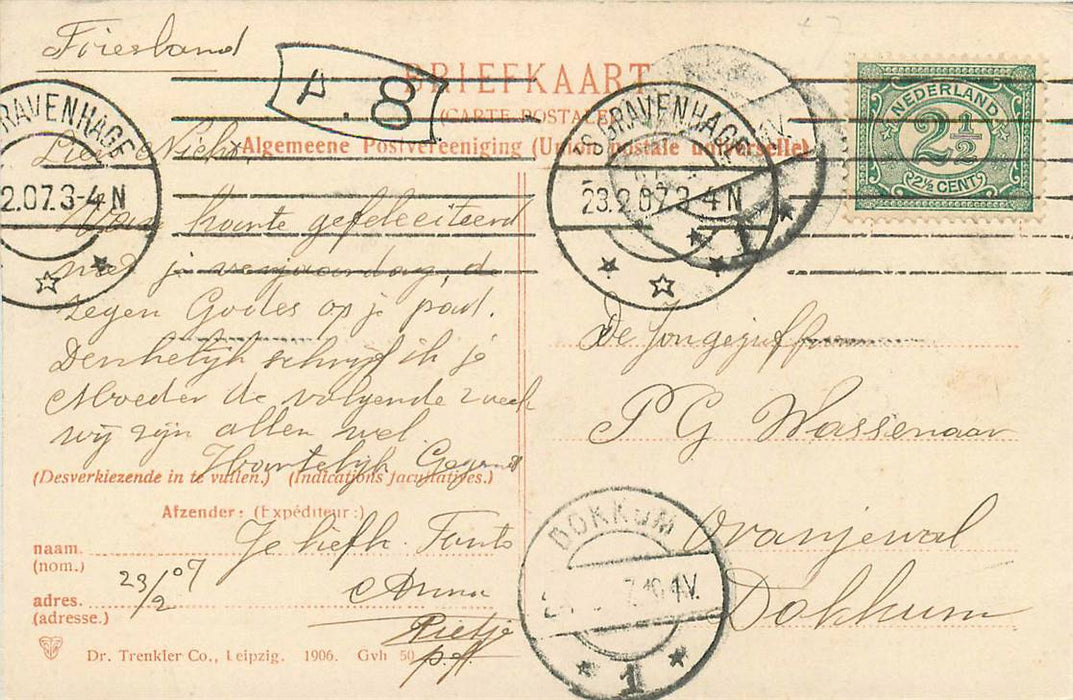 Friesland
BRIEFKAART
(CARTE POSTALE)
Algemeene Postvereeniging (Union postale universelle)
A. 8
NEDERLAND
2½
2½ CENT
'S GRAVENHAGE
2.07.3-4 N
'S GRAVENHAGE
23.2.07.3-4 N
Lieve Nicht,
Van harte gefeleciteerd
met je verjaardag, de
zegen Godes op je pad.
Denkelijk schrijf ik je
Moeder de volgende week
wij zijn allen wel.
Hartelijk Gegroet
De Jongejuffrouw
P G Wassenaar
Oranjewal
Dokkum
(Desverkiezende in te vullen.) (Indications facultatives.)
Afzender: (Expéditeur:)
Je liefh. Tante
naam.
(nom.)
Anna
23/2 07
adres.
(adresse.)
Pietje
DOKKUM
7.10-1V.
1
Dr. Trenkler Co., Leipzig. 1906. Gvh 50